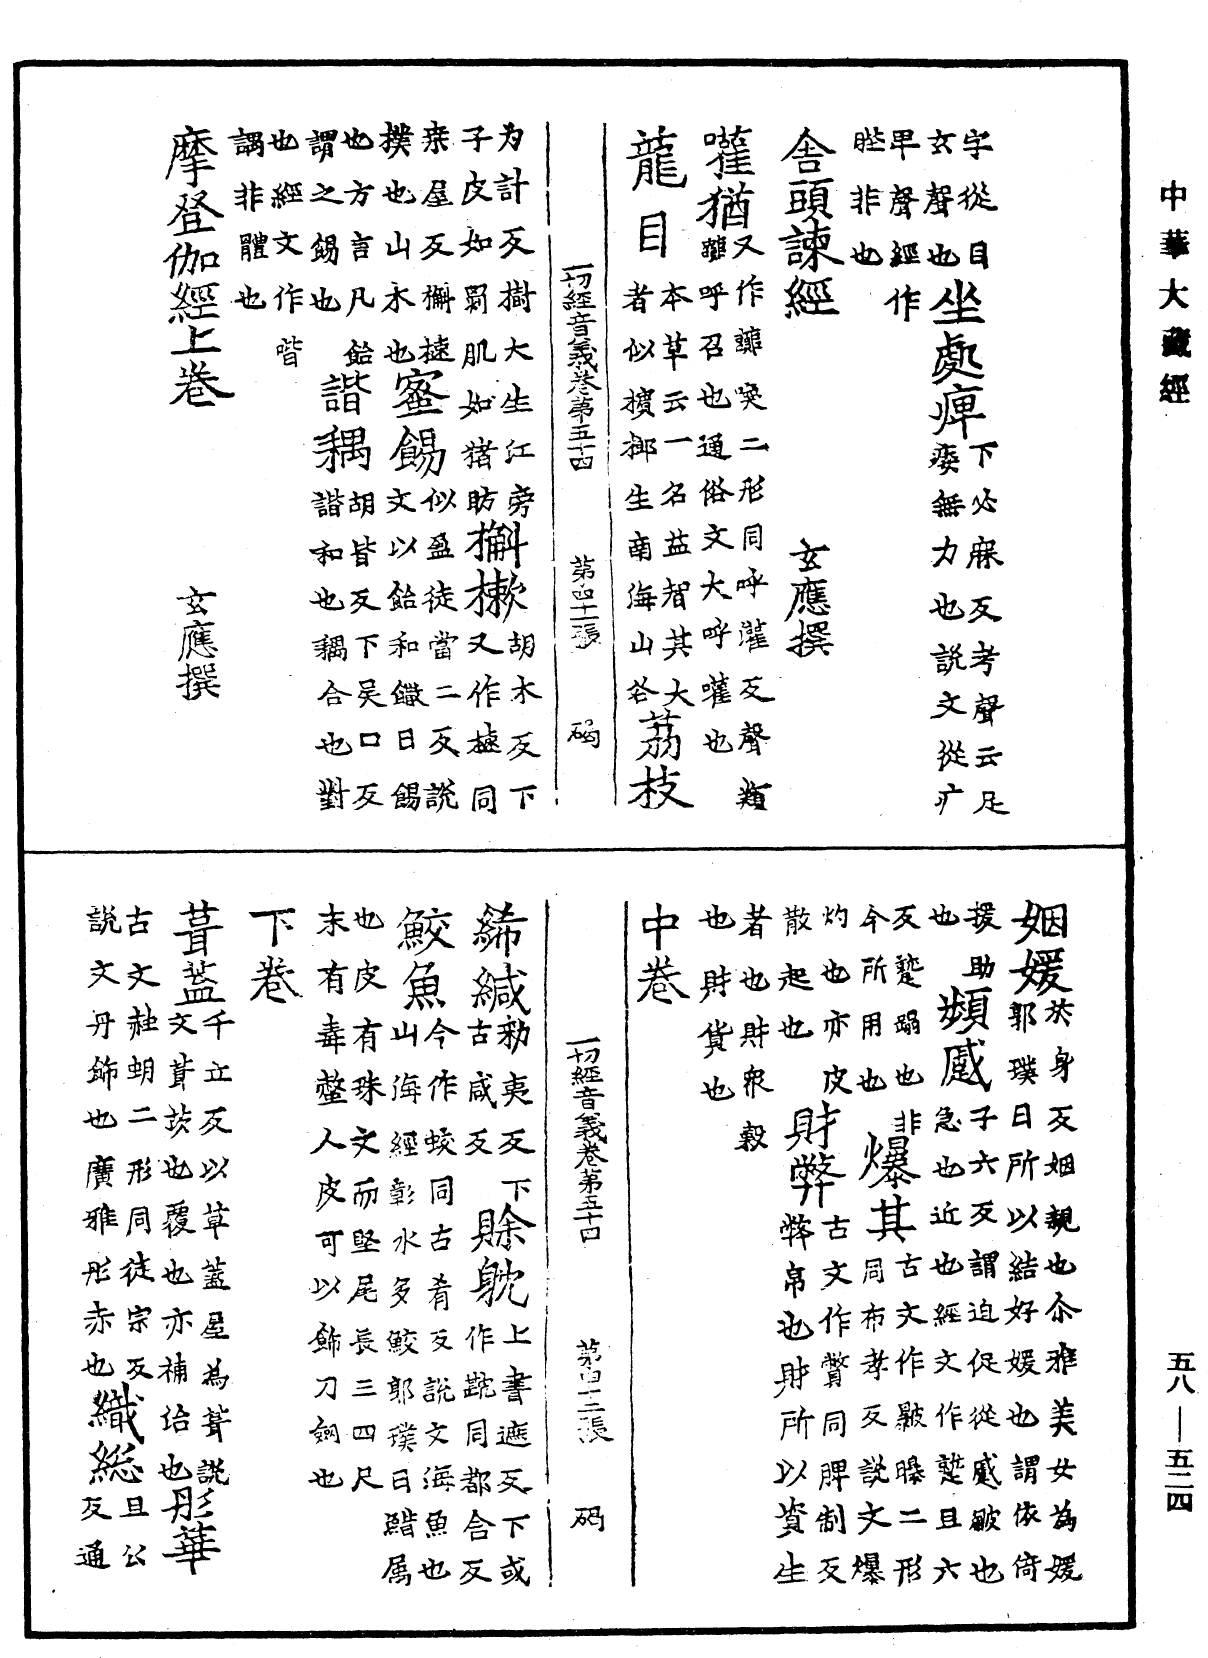 中華大藏經
五八—五二四
字從目
玄聲也坐處痺下必寐反考聲云足
痿無力也說文從疒
甲聲經作
眭非也
舍頭諫經　玄應撰
嚾猶又作讙喚二形同呼灌反聲類
讙呼召也通俗文大呼嚾也
龍目本草云一名益智其大
者似檳榔生南海山谷荔枝
一切經音義卷第五十四　第四十二張　碣
为計反樹大生江旁
子皮如罽肌如猪肪槲樕胡木反下
又作樕同
桒屋反槲樕
樸也山木也蜜餳似盈徒當二反說
文以飴和饊曰餳
也方言凡飴
謂之餳也諧耦胡皆反下吴口反
諧和也耦合也對
也經文作喈
謁非體也
摩登伽經上卷　玄應撰
姻媛於身反姻親也尒雅美女為媛
郭璞曰所以結好媛也謂依倚
援助
也頻蹙子六反謂迫促從蹙皺也
急也近也經文作蹔且六
反蹔蹋也非
今所用也爆其古文作曝二形
同布孝反說文爆
灼也亦皮
散起也財弊古文作贅同脾制反
弊帛也財所以資生
者也財衆穀
也財貨也
中卷
一切經音義卷第五十四　第四十三張　碣
絺緘勑夷反下
古咸反賖躭上書遮反下或
作同都合反
鮫魚今作蛟同古肴反說文海魚也
山海經彰水多鮫郭璞曰䱜属
也皮有珠文而堅尾長三四尺
末有毒螫人皮可以飾刀劒也
下卷
葺蓋千立反以草蓋屋為葺說
文葺茨也覆也亦補治也彤華
古文赨蚒二形同徒宗反
說文丹飾也廣雅彤赤也織総且公
反通